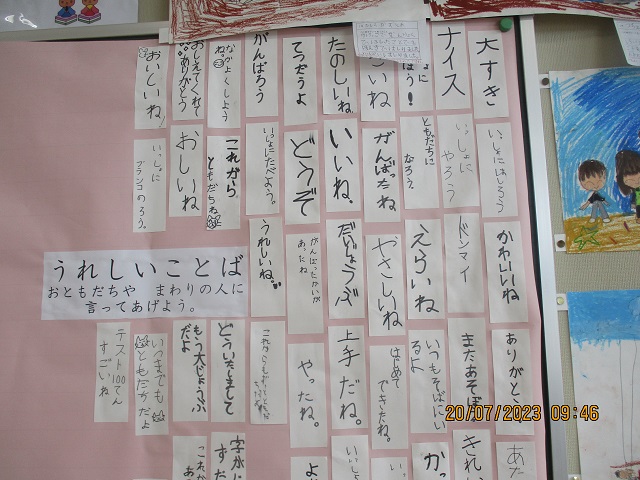 大すき
ナイス
たのしいね
てつだうよ
がんばろう
なかよくしよう
ね。
おしえてくれて
ありがとう
おいしいね
いっしょにはしろう
いっしょに
やろう
ともだちに
なろう
がんばったね
いいね。
どうぞ
いっしょにたべよう。
これから
ともだちね
おしいね
いっしょに
ブランコのろう。
かわいいね
ドンマイ
えらいね
やさしいね
だいじょうぶ
がんばったかいが
あったね
うれしいね。
うれしいことば
おともだちや　まわりの人に
言ってあげよう。
ありがとう
またあそぼ
いつもそばにい
るよ
はじめて
できたね。
上手だね。
やったね。
どういたしまして
もう大じょうぶ
だよ
いつまでも
ともだちだよ
テスト100てん
すごいね
きれい
20/07/2023 09:46